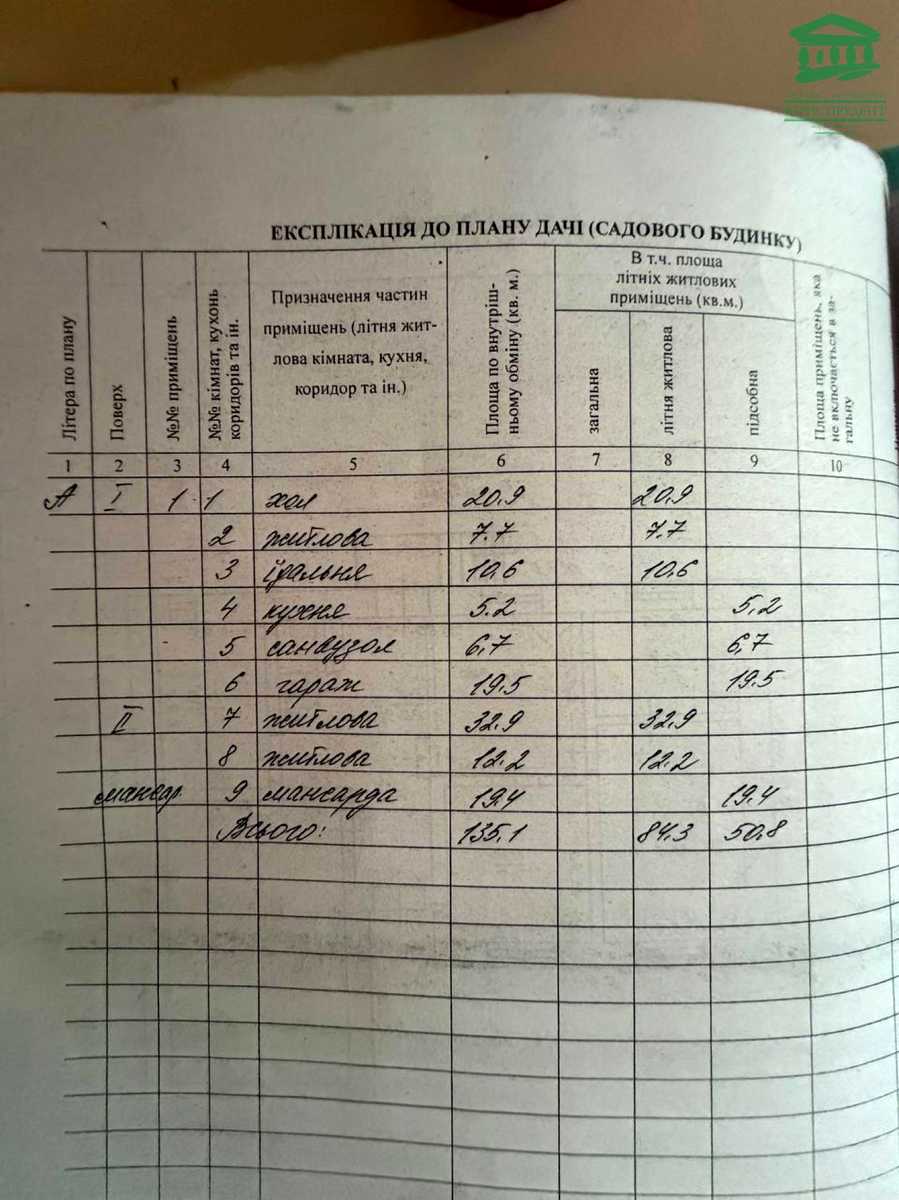 ЕКСПЛІКАЦІЯ ДО ПЛАНУ ДАЧІ (САДОВОГО БУДИНКУ)
Літера по плану
Поверх
№№ приміщень
№№ кімнат, кухонь
коридорів та ін.
Призначення частин
приміщень (літня жит-
лова кімната, кухня,
коридор та ін.)
Площа по внутріш-
ньому обміну (кв. м.)
В т.ч. площа
літніх житлових
приміщень (кв.м.)
загальна
літня житлова
підсобна
Площа приміщень, яка
не включається в за-
гальну
1 2 3 4 5 6 7 8 9 10
А І 1 1 хол 20.9 20.9
2 житлова 7.7 7.7
3 їдальня 10,6 10,6
4 кухня 5.2 5,2
5 санвузол 6,7 6,7
6 гараж 19.5 19.5
ІІ 7 житлова 32.9 32.9
8 житлова 12.2 12.2
мансар. 9 мансарда 19.4 19.4
Всього: 135.1 84.3 50.8